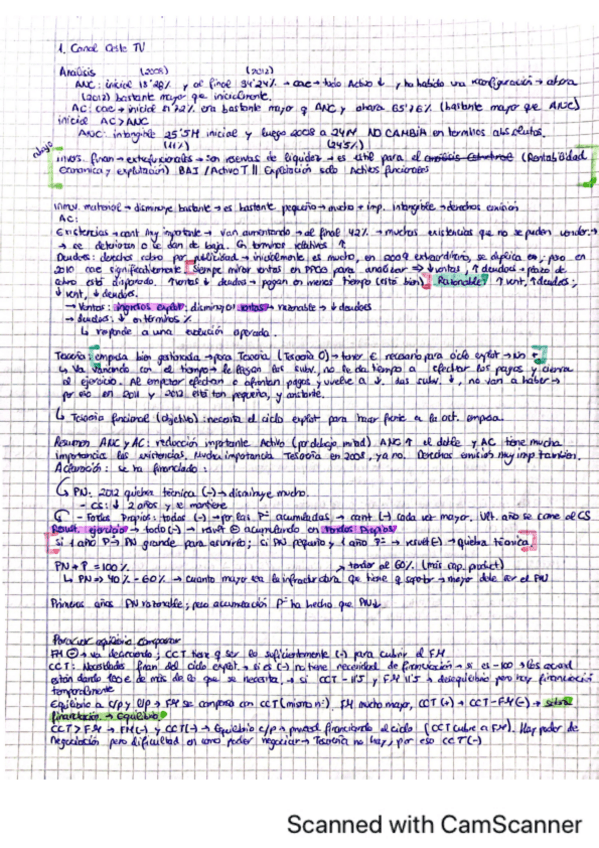 1. Canal Oeste TV
Análisis (2008) (2012)
ANC: inicial 18'28% y al final 34'24% → cae → todo Activo ↓, ha habido una reconfiguración → ahora
(2012) bastante mayor que inicialmente.
AC: cae → inicial 81'72% era bastante mayor q ANC y ahora 65'76% (bastante mayor que ANC)
inicial AC>ANC
ANC: intangible 25'5M inicial y luego 2008 a 24M NO CAMBIA en términos absolutos.
(11%) (24'5%)
abajo
invers. finan → extrafuncionales → son reservas de liquidez → es útil para el (Rentabilidad
Económica y explotación) BAI / Activo T || Explotación solo Activos funcionales
Inmov. material → disminuye bastante → es bastante pequeño → mucho + imp. intangible → derechos emisión
AC:
Existencias → cant muy importante → van aumentando → al final 42% → muchas existencias que no se pueden vender →
→ se deterioran o se dan de baja. En términos relativos ↑
Deudores: derechos cobro por publicidad → inicialmente es mucho, en 2009 extraordinario, se duplica en; pero en
2010 cae significativamente [siempre mirar ventas en PPGG para analizar → ↓ventas, ↑ deudores → plazo de
cobro está disparado. ↑ventas ↓ deudas → pagan en menos tiempo (está bien)] Razonable? ↑ vent, ↑deudores;
↓ vent, ↓ deudores.
→ Ventas: ingresos explot; disminución ventas → razonable → ↓ deudores
→ deudas: ↓ en términos %
↳ responde a una evolución operada.
Tesorería [empresa bien gestionada → para Tesorería (Tesorería 0) → tener € necesario para ciclo explot → no +]
↳ Va variando con el tiempo → le llegan las subv., no le da tiempo a efectuar los pagos y cierra
el ejercicio. Al empezar efectúan o afrontan pagos y vuelve a ↓. das subv. ↓, no van a haber →
por eso en 2011 y 2012 está tan pequeña, y constante.
↳ Tesorería funcional (objetivo): necesita el ciclo explot para hacer frente a la act. empresa.
Resumen ANC y AC: reducción importante Activo (por debajo mitad) ANC ↑ el doble y AC tiene mucha
importancia las existencias, mucha importancia Tesorería en 2008, ya no. Derechos emisión muy imp también.
Aclaración: se ha financiado:
↳ PN: 2012 quiebra técnica (-) → disminuye mucho.
- CS: ↓ 2 años y se mantiene
- Fondos Propios: todos (-) → por las Pª acumuladas → cant (-) cada vez mayor. Ult. año se come el CS
Result. ejercicio → todo (-) → result ⊖ acumulando en Fondos Propios
[si 1 año Pª → PN grande para asumirlo; si PN pequeño y 1 año Pª → result (-) → quiebra técnica]
PN + P = 100% → tender al 60% (más cap. product)
↳ PN ⇒ 40% - 60% → cuanto mayor sea la infraestructura que tiene q soportar → mejor debe ser el PN
Primeros años PN razonable; pero acumulación Pª ha hecho que PN↓
Para ver equilibrio comparar
FM ⊖ → va decreciendo; CCT tiene q ser lo suficientemente (-) para cubrir el FM
CCT: Necesidades finan. del ciclo explot. → si es (-) no tiene necesidad de financiación → si es -100 → los acreed
están dando 100€ de más de lo que se necesita. → si CCT -115 y FM 115 → desequilibrio pero hay financiación
temporalmente
Equilibrio a c/p y l/p → FM se compara con CCT (mismo nº). FM mucho mayor, CCT (+) → CCT-FM (-) → sobra
financiación → equilibrio
CCT > FM → FM (-) y CCT (-) → Equilibrio c/p → proveed. financiando el ciclo (CCT cubre a FM). Hay poder de
negociación pero dificultad en como poder negociar → Tesorería no hay, por eso CCT (-)
Scanned with CamScanner